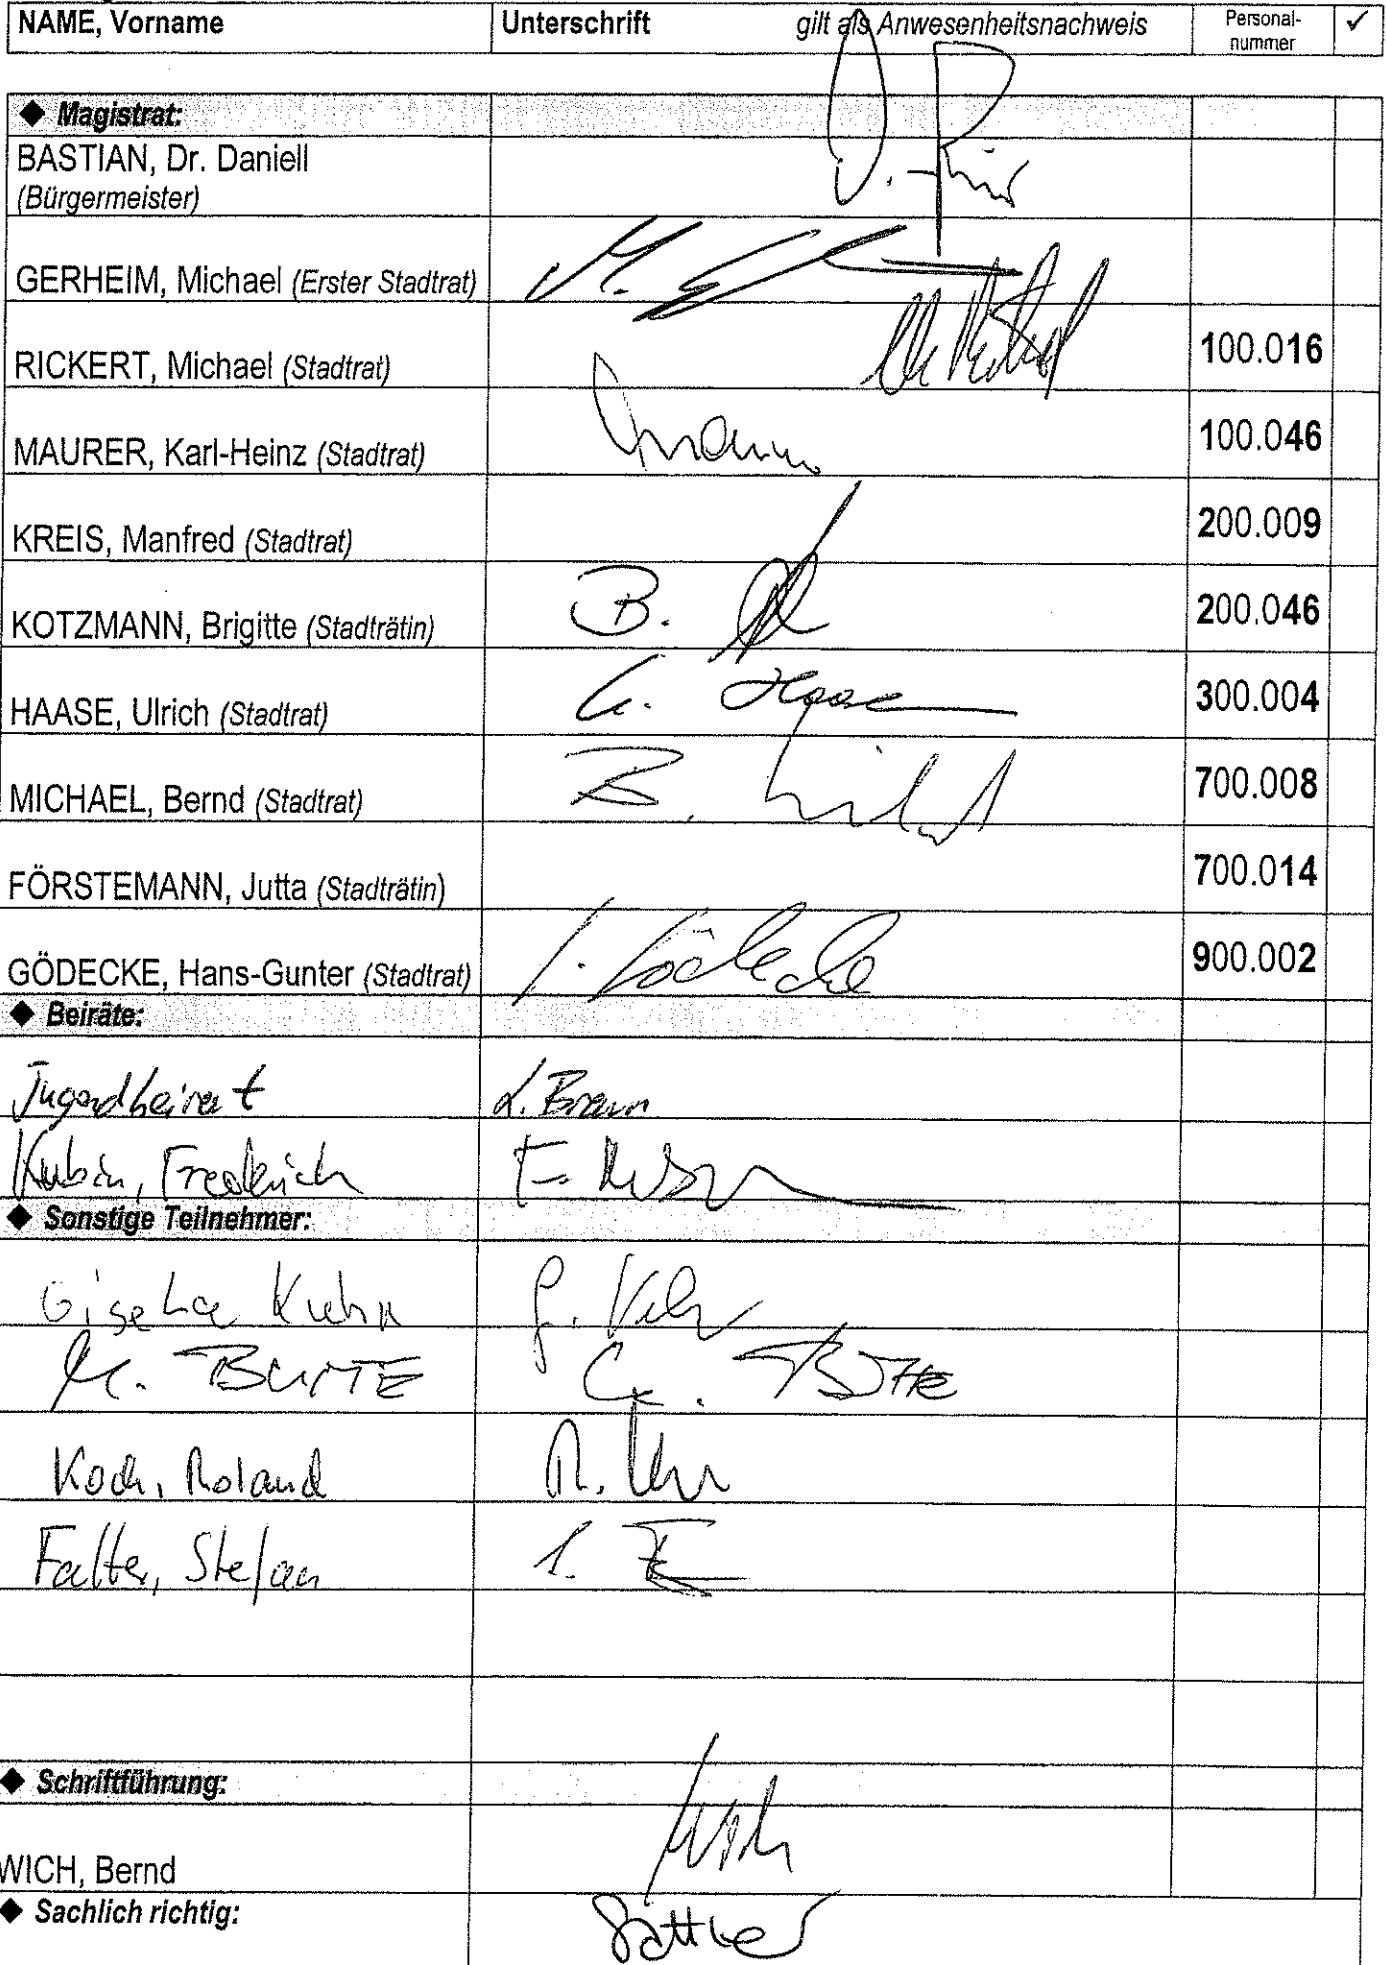 NAME, Vorname Unterschrift gilt als Anwesenheitsnachweis Personal-nummer ✓
◆ Magistrat:
BASTIAN, Dr. Daniell
(Bürgermeister)
GERHEIM, Michael (Erster Stadtrat) M.
RICKERT, Michael (Stadtrat) 100.016
MAURER, Karl-Heinz (Stadtrat) 100.046
KREIS, Manfred (Stadtrat) 200.009
KOTZMANN, Brigitte (Stadträtin) B. 200.046
HAASE, Ulrich (Stadtrat) U. Haase 300.004
MICHAEL, Bernd (Stadtrat) B. 700.008
FÖRSTEMANN, Jutta (Stadträtin) 700.014
GÖDECKE, Hans-Gunter (Stadtrat) Gödecke 900.002
◆ Beiräte:
Jugendbeirat L. Braun
Kubin, Frederich F.
◆ Sonstige Teilnehmer:
Gisela Kuhn G.
BUTTE
Koch, Roland R.
Falter, Stefan S.
◆ Schriftführung:
WICH, Bernd Wich
◆ Sachlich richtig: